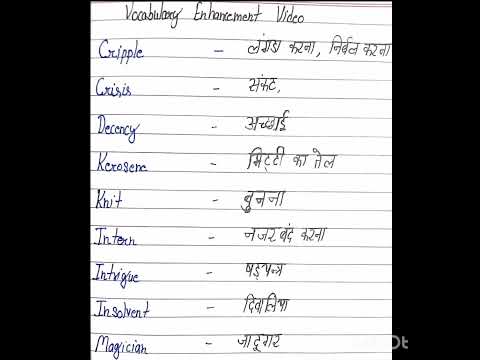 Vocabulary Enhancement Video
Cripple - लंगडा करना, निर्बल करना
Crisis - संकट,
Decency - अच्छाई
Kerosene - मिट्टी का तेल
Knit - बुनना
Intern - नजर बंद करना
Intrigue - षड़यन्त्र
Insolvent - दिवालिया
Magician - जादूगर